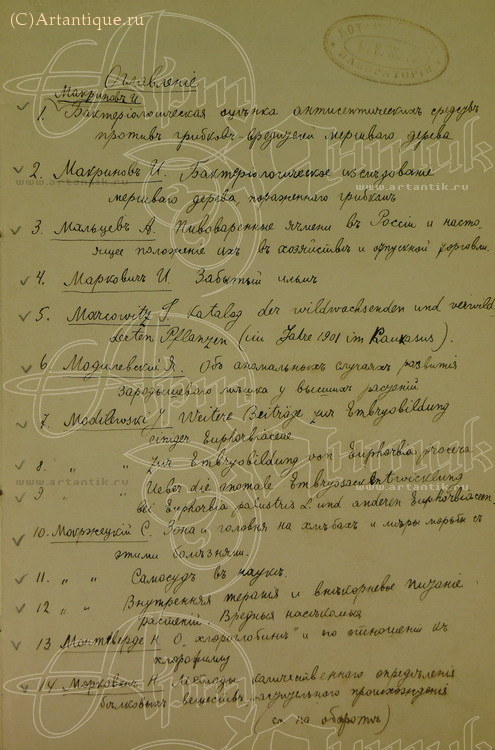 (C)Artantique.ru
Оглавленіе
Макриновъ И.
1. Бактеріологическая оцѣнка антисептическихъ средствъ
противъ грибковъ-вредителей мертваго дерева
2. Макриновъ И. Бактеріологическое изслѣдованіе
мертваго дерева, пораженнаго грибкамъ
www.artantik.ru
3. Мальцевъ А. Пивоваренные ячмени въ Россіи и насто-
ящее положеніе ихъ въ хозяйствѣ и отпускной торговлѣ.
4. Марковичъ И. Забытый ильмъ
5. Marcowitz J. Katalog der wildwachsenden und verwil-
derten Pflanzen (im Jahre 1901 im Kaukasus).
6. Модилевскій Я. Объ аномальныхъ случаяхъ развитія
зародышеваго мѣшка у высшихъ растеній
7. Modilewski J. Weitere Beiträge zur Embryobildung
einiger Euphorbiaceae
8. " " Zur Embryobildung von Euphorbia procera
www.artantik.ru
9 " " Ueber die anomale Embryosackentwicklung
bei Euphorbia palustris L. und anderen Euphorbiaceen.
10. Мокржецкій С. Зона и головня на хлѣбахъ и мѣры борьбы съ
этими болѣзнями.
11. " " Самосудъ въ наукѣ.
12 " " Внутренняя терапія и внѣкорневое питаніе
растеній. Вредныя насѣкомыя
13 Монтеверде Н О "хлороглобинъ" и его отношеніи къ
хлорофиллу
14. Морковинъ Н Методы количественнаго опредѣленія
бѣлковыхъ веществъ происхожденія
(см на оборотѣ)